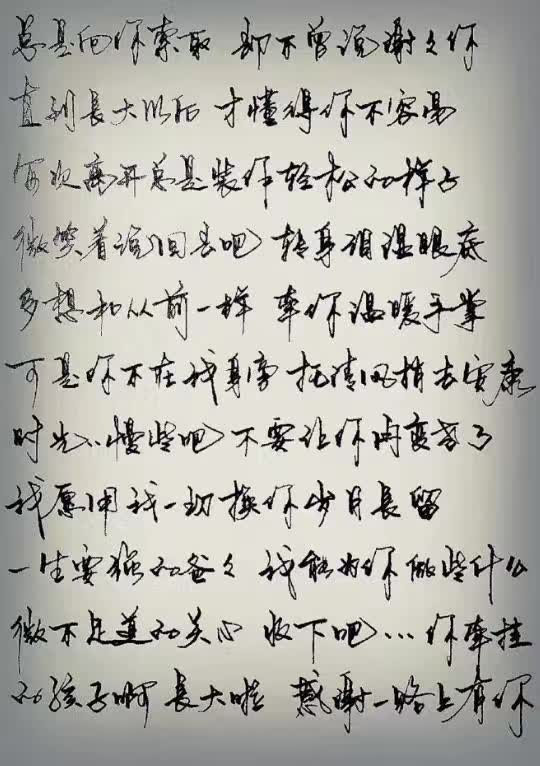 总是向你索取 却不曾说谢谢你
直到長大以后 才懂得你不容易
每次离开总是装作轻松的样子
微笑着说回去吧 转身泪湿眼底
多想和从前一样 牵你温暖手掌
可是你不在我身旁 托清风捎去安康
时光..慢些吧 不要让你再变老了
我愿用我一切换你岁月長留
一生要强的爸爸 我能为你做些什么
微不足道的关心 收下吧... 你牵挂
的孩子啊 長大啦 感谢一路上有你